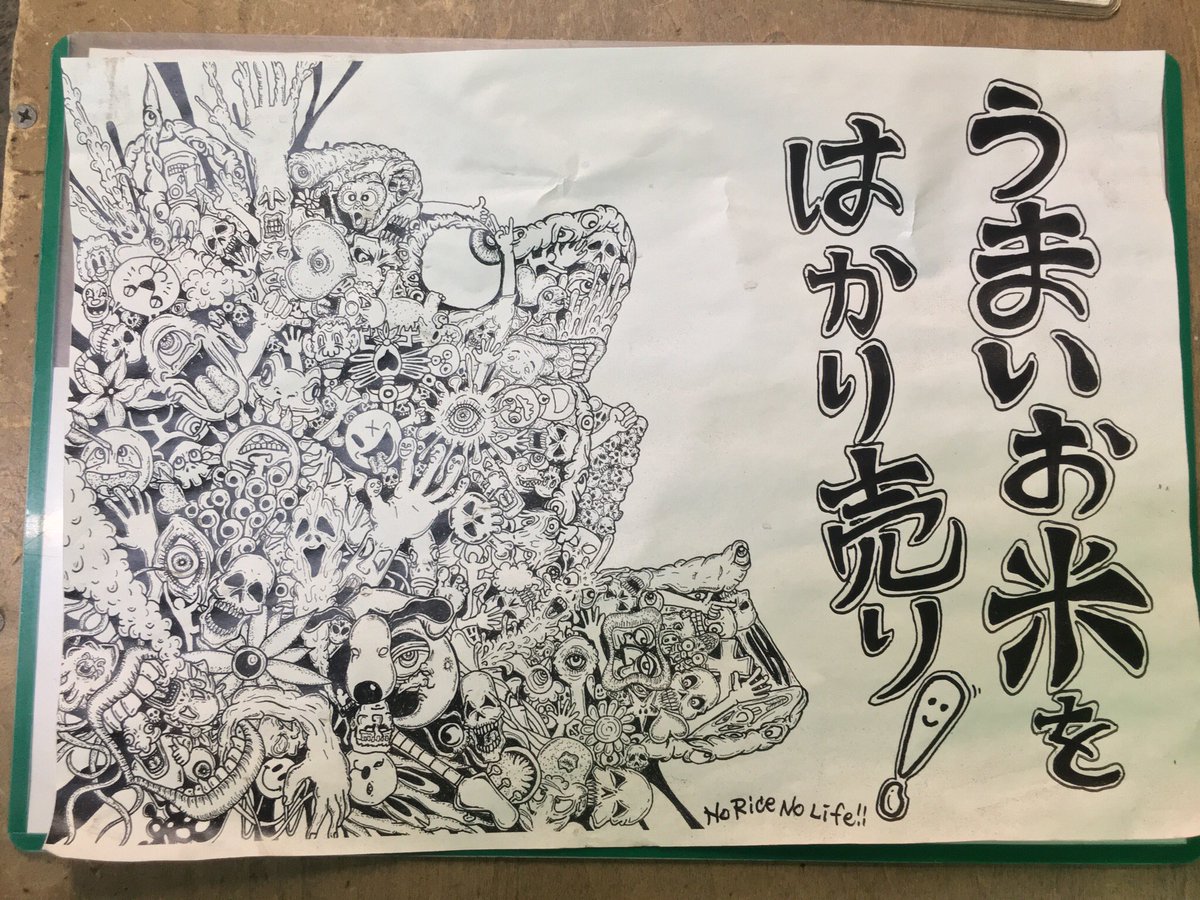 うまいお米を
はかり売り!
No Rice No Life!!